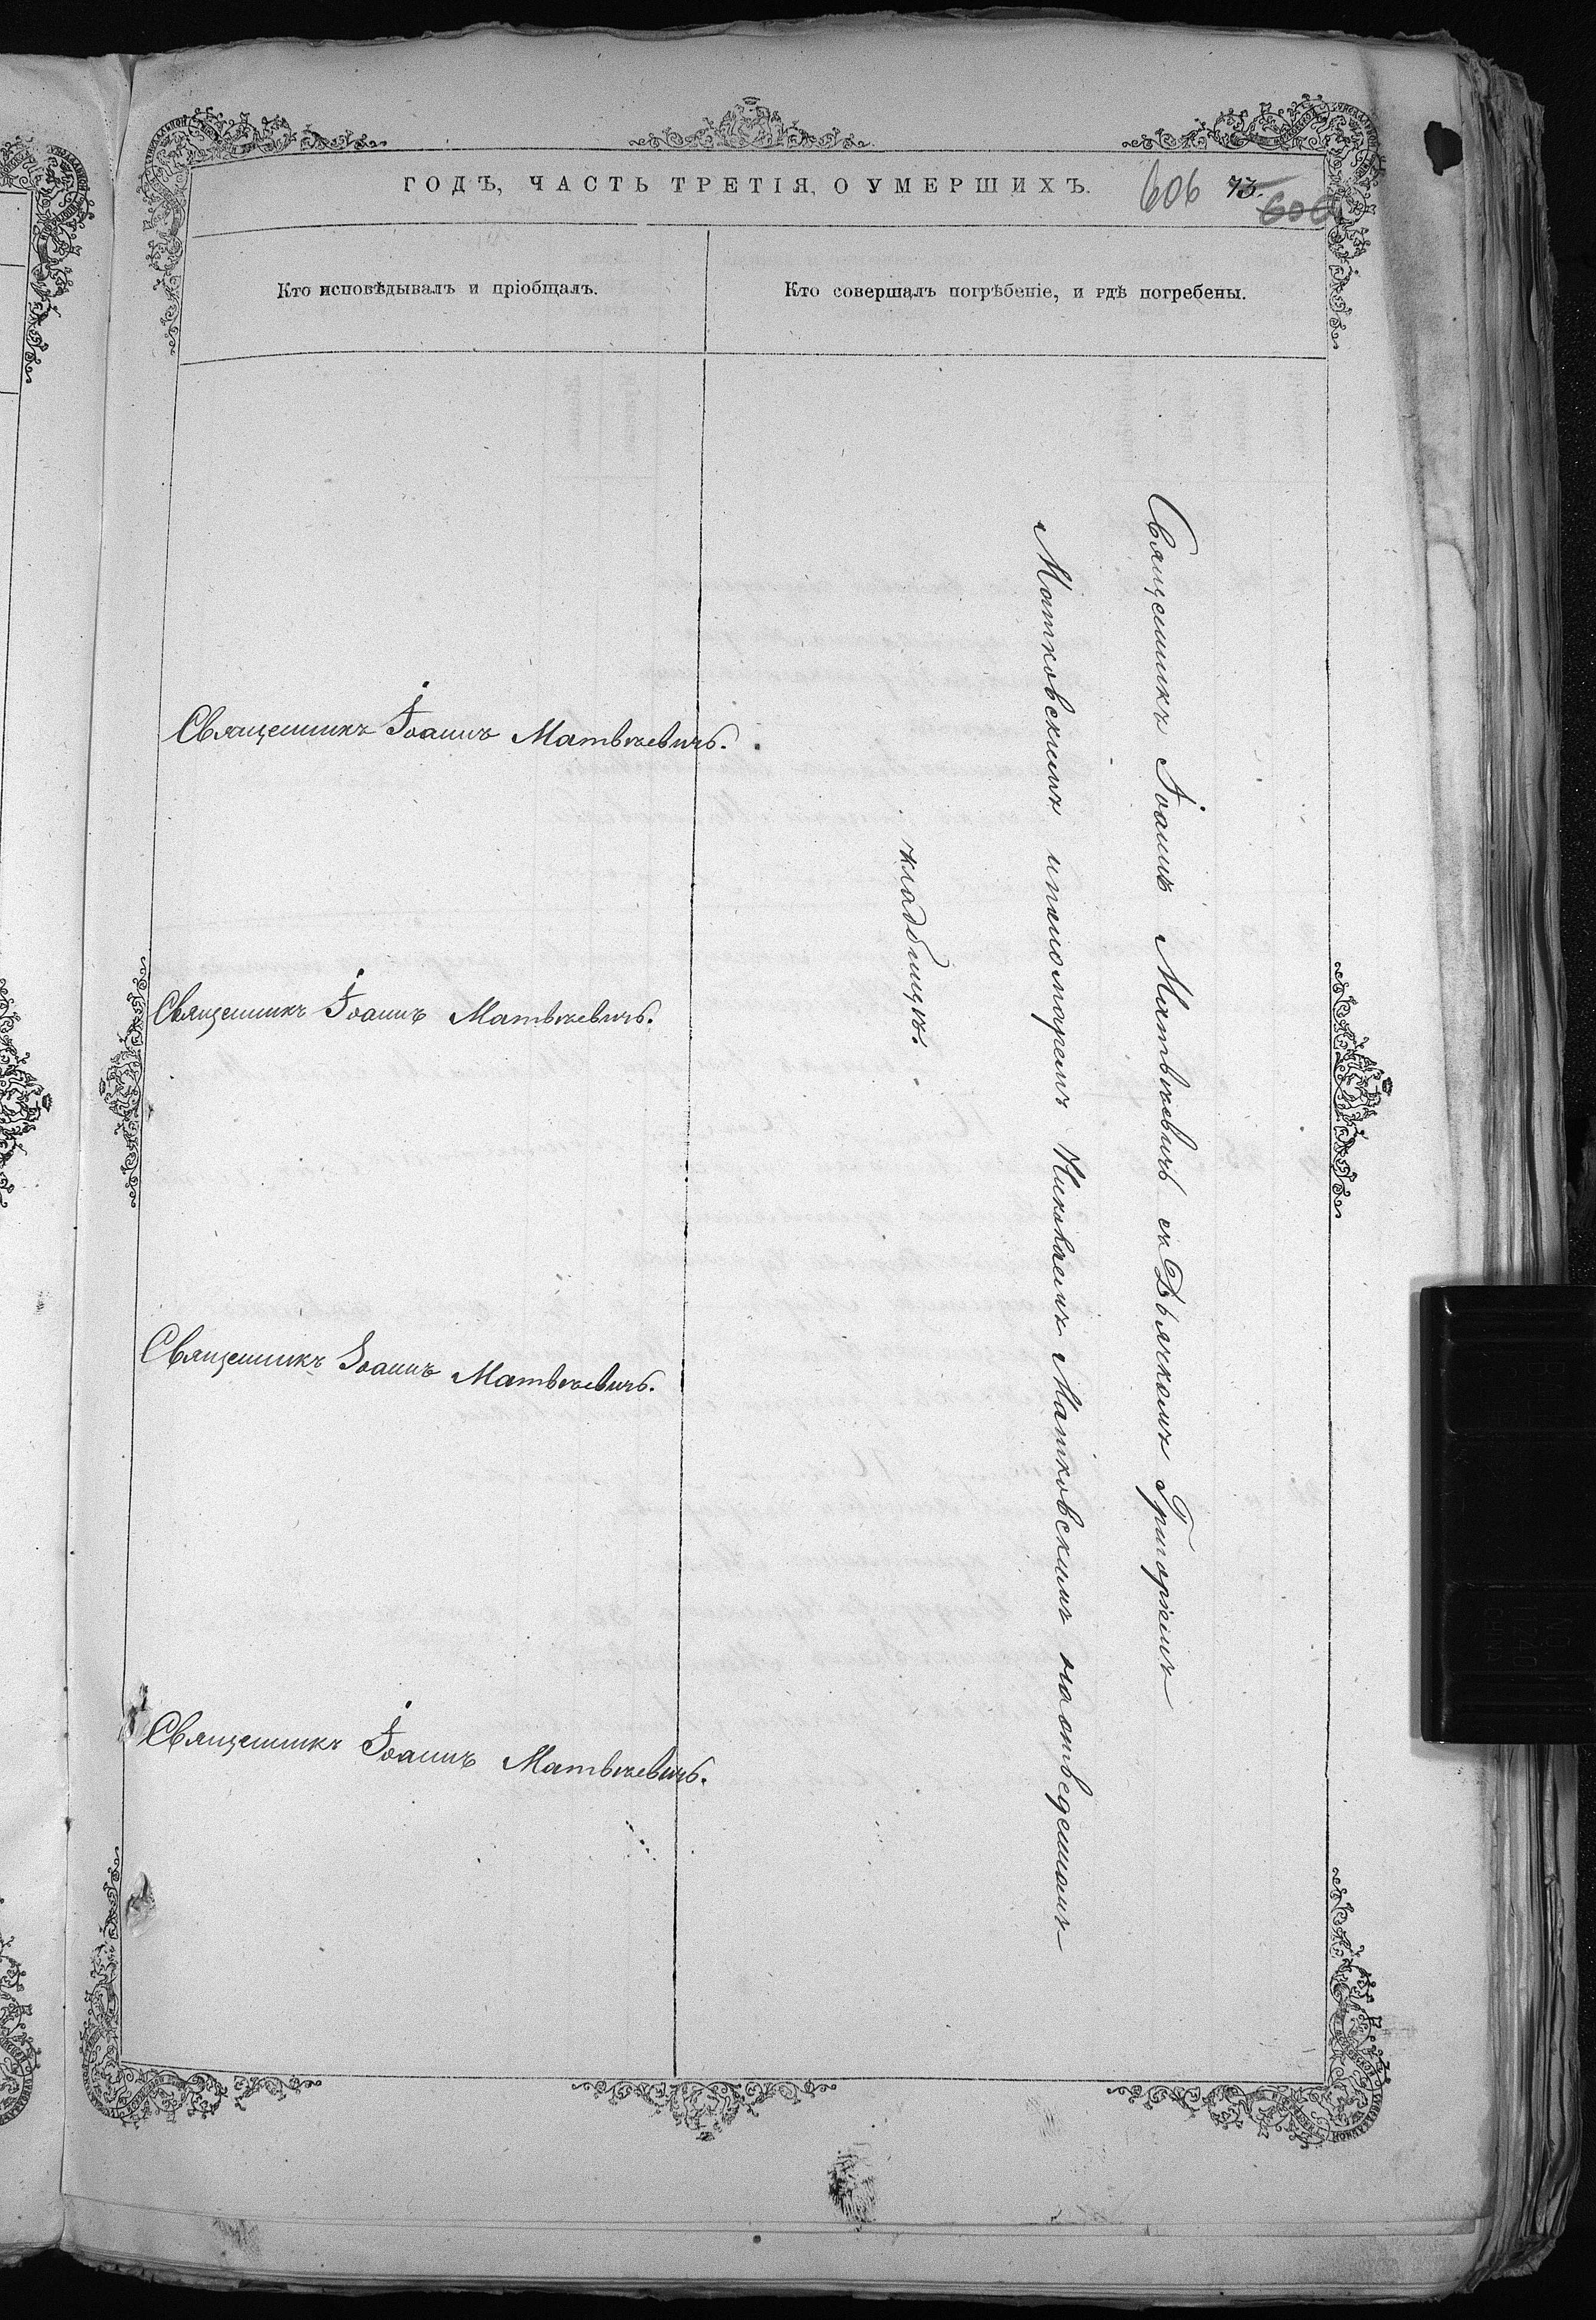 ГОДЪ, ЧАСТЬ ТРЕТІЯ, О УМЕРШИХЪ.
606 73. 600
Кто исповѣдывалъ и пріобщалъ.
Кто совершалъ погрѣбеніе, и гдѣ погребены.
Священникъ Іоаннъ Матвѣевичъ.
Священникъ Іоаннъ Матвѣевичъ.
Священникъ Іоаннъ Матвѣевичъ.
Священникъ Іоаннъ Матвѣевичъ.
Священникъ Іоаннъ Матвѣевичъ съ Дьячкомъ Григоріемъ
Матковскимъ ипономаремъ Николаемъ Матковскимъ наотведенномъ
кладбищѣ.